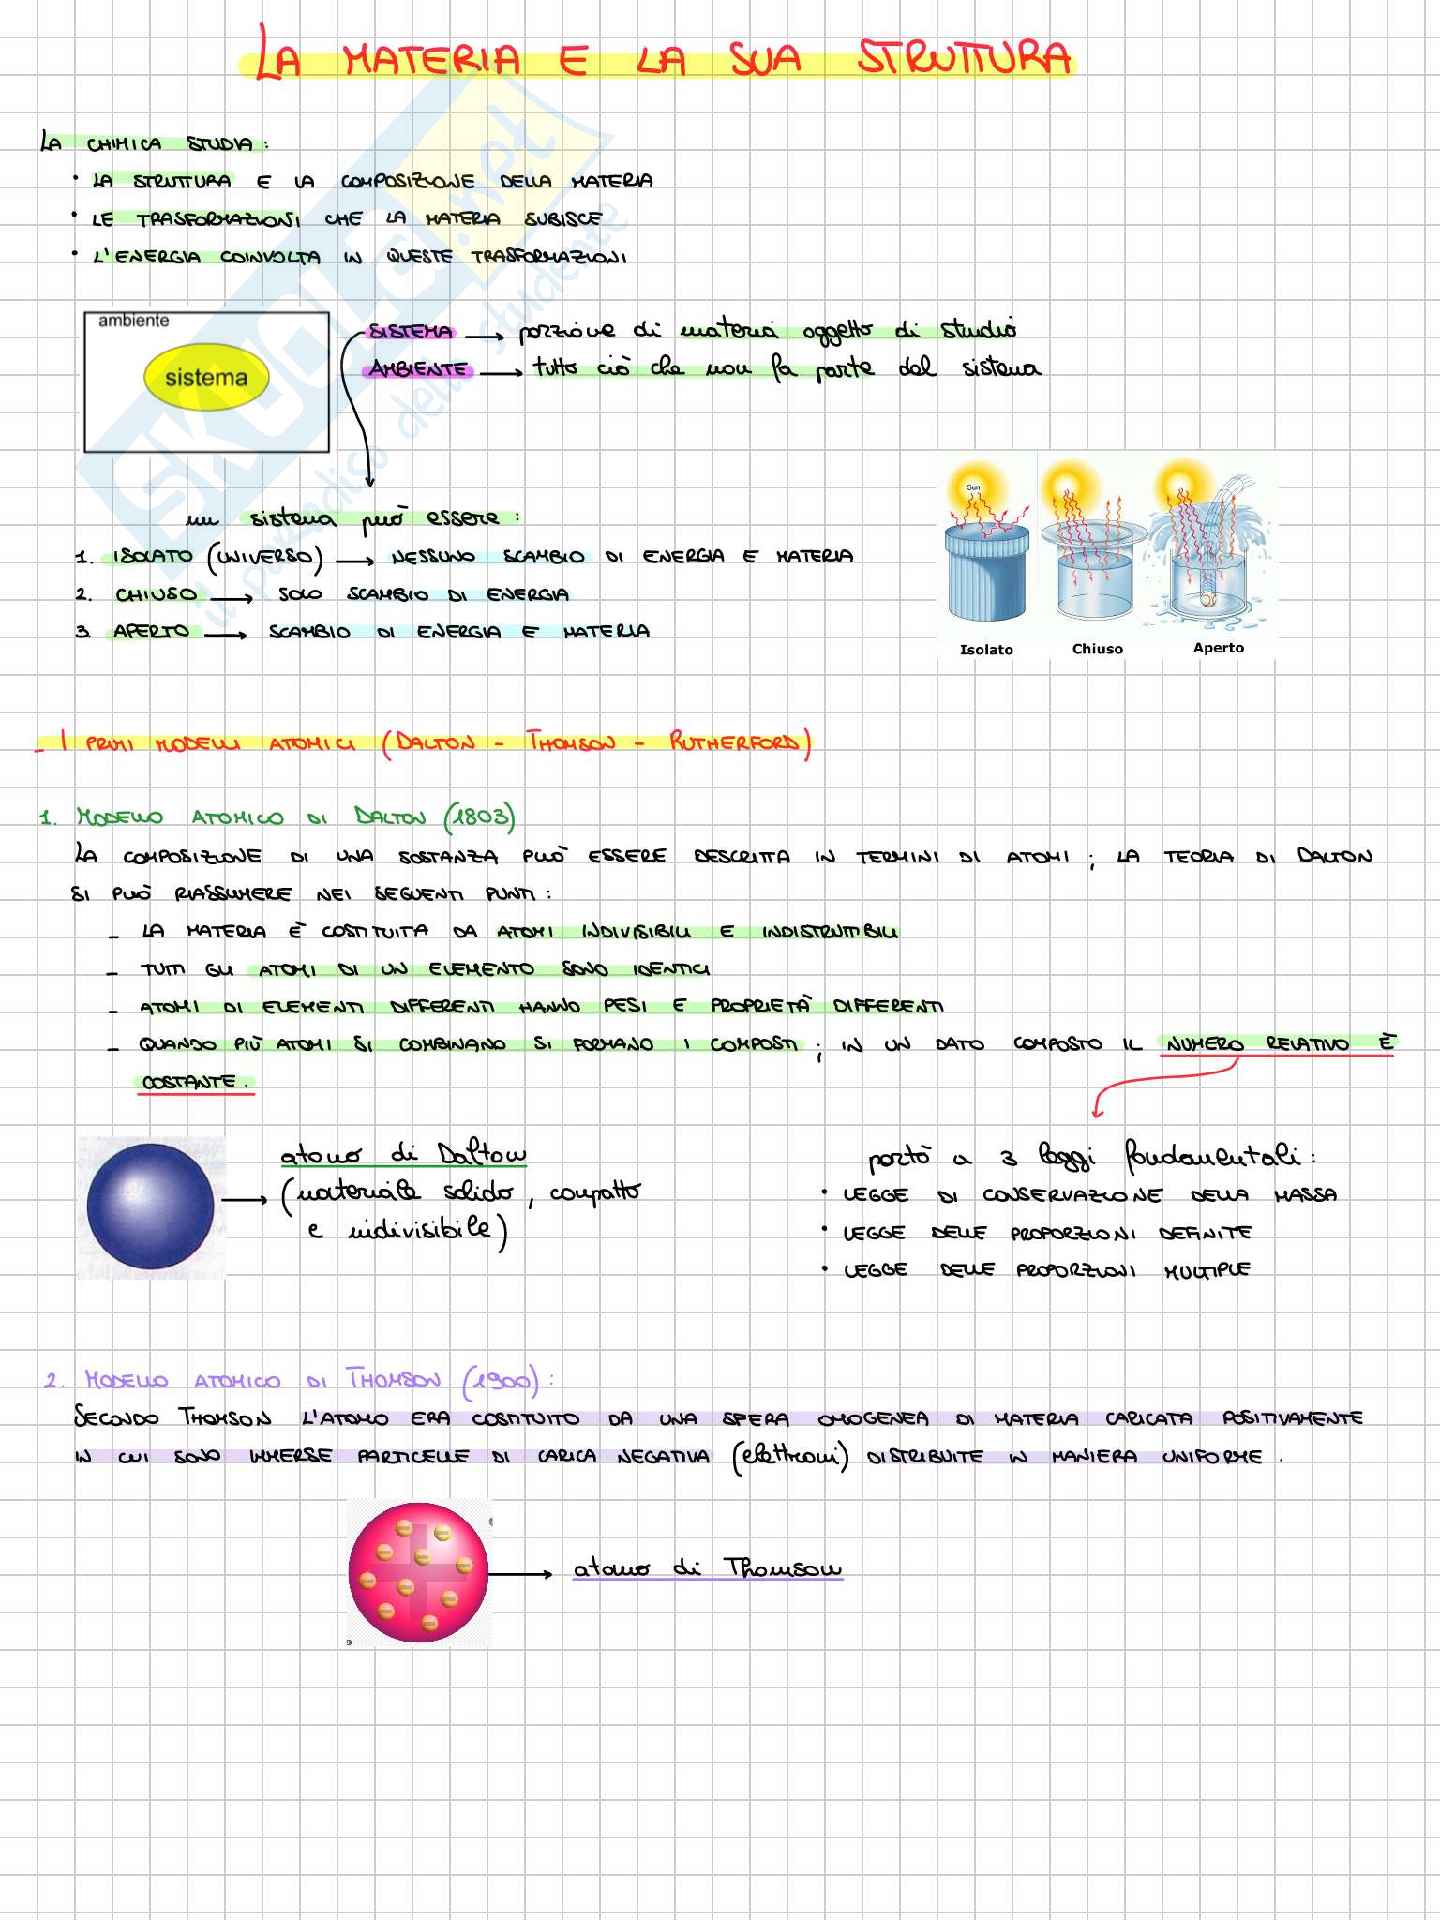 LA MATERIA E LA SUA STRUTTURA
LA CHIMICA STUDIA:
• LA STRUTTURA E LA COMPOSIZIONE DELLA MATERIA
• LE TRASFORMAZIONI CHE LA MATERIA SUBISCE
• L'ENERGIA COINVOLTA IN QUESTE TRASFORMAZIONI
ambiente
sistema
SISTEMA → porzione di materia oggetto di studio
AMBIENTE → tutto ciò che non fa parte del sistema
un sistema può essere:
1. ISOLATO (UNIVERSO) → NESSUNO SCAMBIO DI ENERGIA E MATERIA
2. CHIUSO → SOLO SCAMBIO DI ENERGIA
3. APERTO → SCAMBIO DI ENERGIA E MATERIA
Sun
Isolato Chiuso Aperto
SKUOLA.net
il paradiso dello studente
- I PRIMI MODELLI ATOMICI (DALTON - THOMSON - RUTHERFORD)
1. MODELLO ATOMICO DI DALTON (1803)
LA COMPOSIZIONE DI UNA SOSTANZA PUÒ ESSERE DESCRITTA IN TERMINI DI ATOMI; LA TEORIA DI DALTON
SI PUÒ RIASSUMERE NEI SEGUENTI PUNTI:
- LA MATERIA È COSTITUITA DA ATOMI INDIVISIBILI E INDISTRUTTIBILI
- TUTTI GLI ATOMI DI UN ELEMENTO SONO IDENTICI
- ATOMI DI ELEMENTI DIFFERENTI HANNO PESI E PROPRIETÀ DIFFERENTI
- QUANDO PIÙ ATOMI SI COMBINANO SI FORMANO I COMPOSTI; IN UN DATO COMPOSTO IL NUMERO RELATIVO È
COSTANTE.
atomo di Dalton
(materiale solido, compatto
e indivisibile)
portò a 3 leggi fondamentali:
• LEGGE DI CONSERVAZIONE DELLA MASSA
• LEGGE DELLE PROPORZIONI DEFINITE
• LEGGE DELLE PROPORZIONI MULTIPLE
2. MODELLO ATOMICO DI THOMSON (1900):
SECONDO THOMSON L'ATOMO ERA COSTITUITO DA UNA SFERA OMOGENEA DI MATERIA CARICATA POSITIVAMENTE
IN CUI SONO IMMERSE PARTICELLE DI CARICA NEGATIVA (elettroni) DISTRIBUITE IN MANIERA UNIFORME.
atomo di Thomson